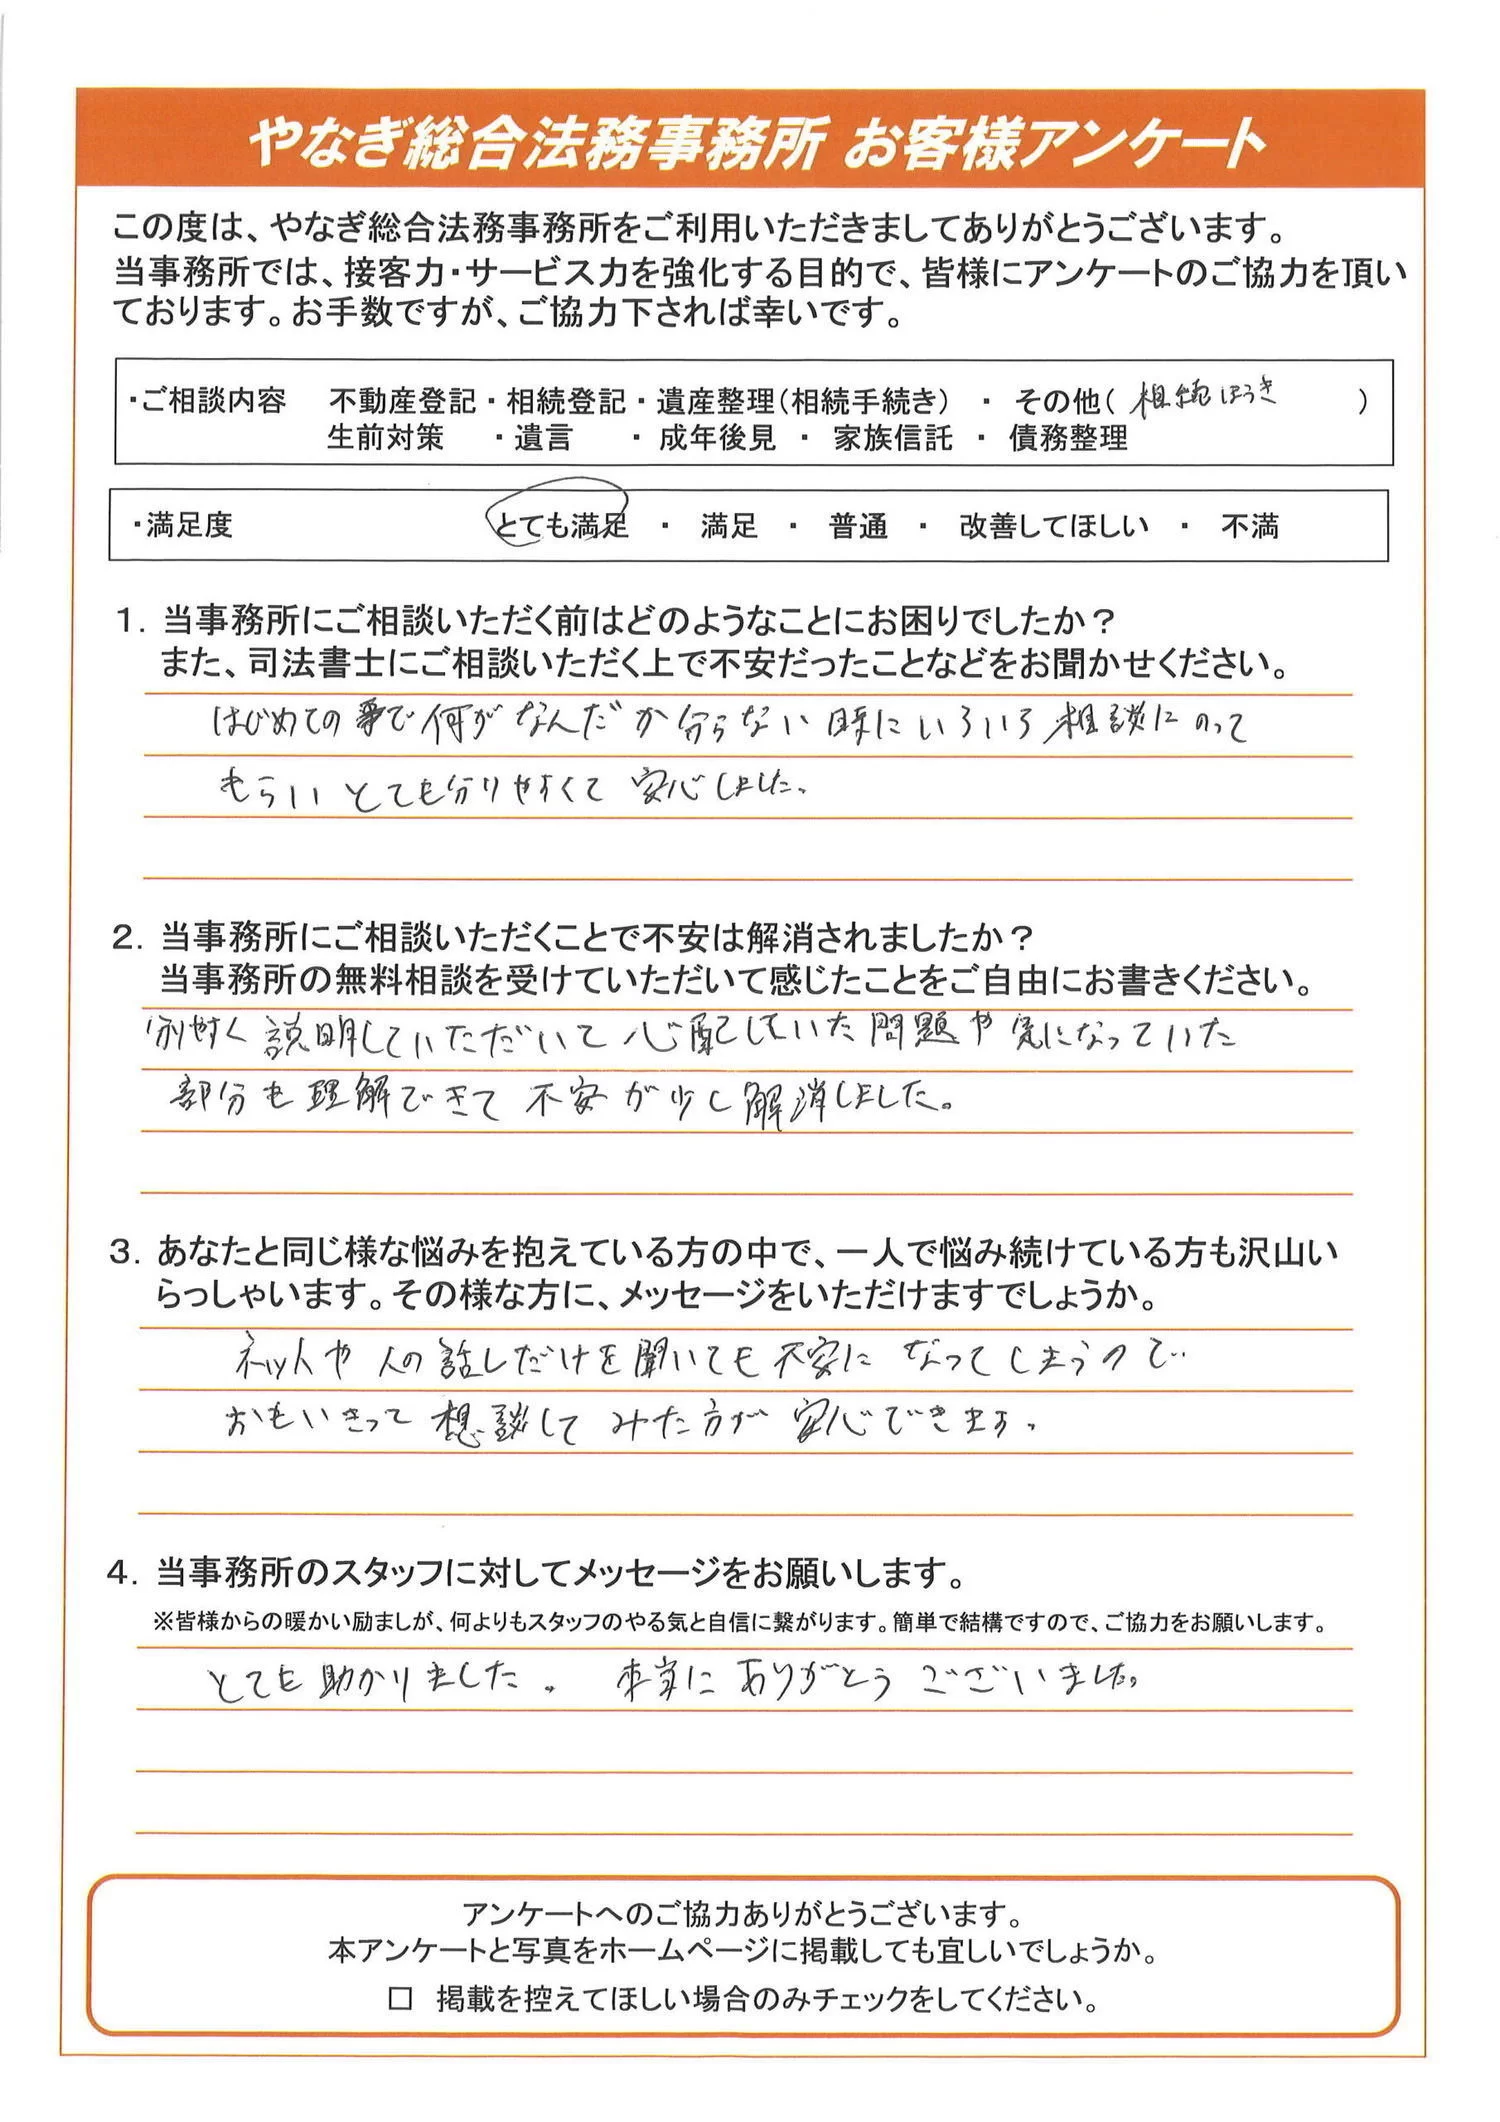 やなぎ総合法務事務所 お客様アンケート
この度は、やなぎ総合法務事務所をご利用いただきましてありがとうございます。
当事務所では、接客力・サービス力を強化する目的で、皆様にアンケートのご協力を頂い
ております。お手数ですが、ご協力下されば幸いです。
・ご相談内容 不動産登記・相続登記・遺産整理(相続手続き) ・ その他( 相続ほうき )
生前対策 ・遺言 ・成年後見 ・ 家族信託 ・ 債務整理
・満足度 とても満足 ・ 満足 ・ 普通 ・ 改善してほしい ・ 不満
1. 当事務所にご相談いただく前はどのようなことにお困りでしたか?
また、司法書士にご相談いただく上で不安だったことなどをお聞かせください。
はじめての事で何がなんだか分らない時にいろいろ相談にのって
もらいとても分りやすくて安心しました。
2. 当事務所にご相談いただくことで不安は解消されましたか?
当事務所の無料相談を受けていただいて感じたことをご自由にお書きください。
説明していただいて心配していた問題や気になっていた
部分も理解できて不安が少し解消しました。
3. あなたと同じ様な悩みを抱えている方の中で、一人で悩み続けている方も沢山い
らっしゃいます。その様な方に、メッセージをいただけますでしょうか。
ネットや人の話しだけを聞いても不安になってしまうので
おもいきって想談してみた方が安心できます。
4. 当事務所のスタッフに対してメッセージをお願いします。
※皆様からの暖かい励ましが、何よりもスタッフのやる気と自信に繋がります。簡単で結構ですので、ご協力をお願いします。
とても助かりました。 本当にありがとうございました。
アンケートへのご協力ありがとうございます。
本アンケートと写真をホームページに掲載しても宜しいでしょうか。
□ 掲載を控えてほしい場合のみチェックをしてください。